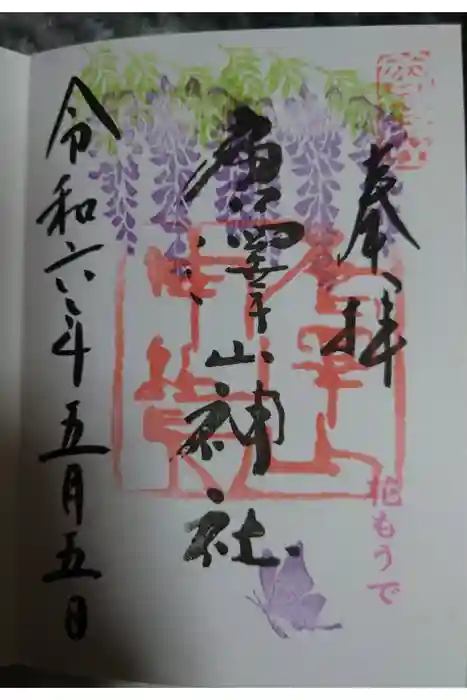 奉拝
花もうで
唐澤山神社
令和六年五月五日